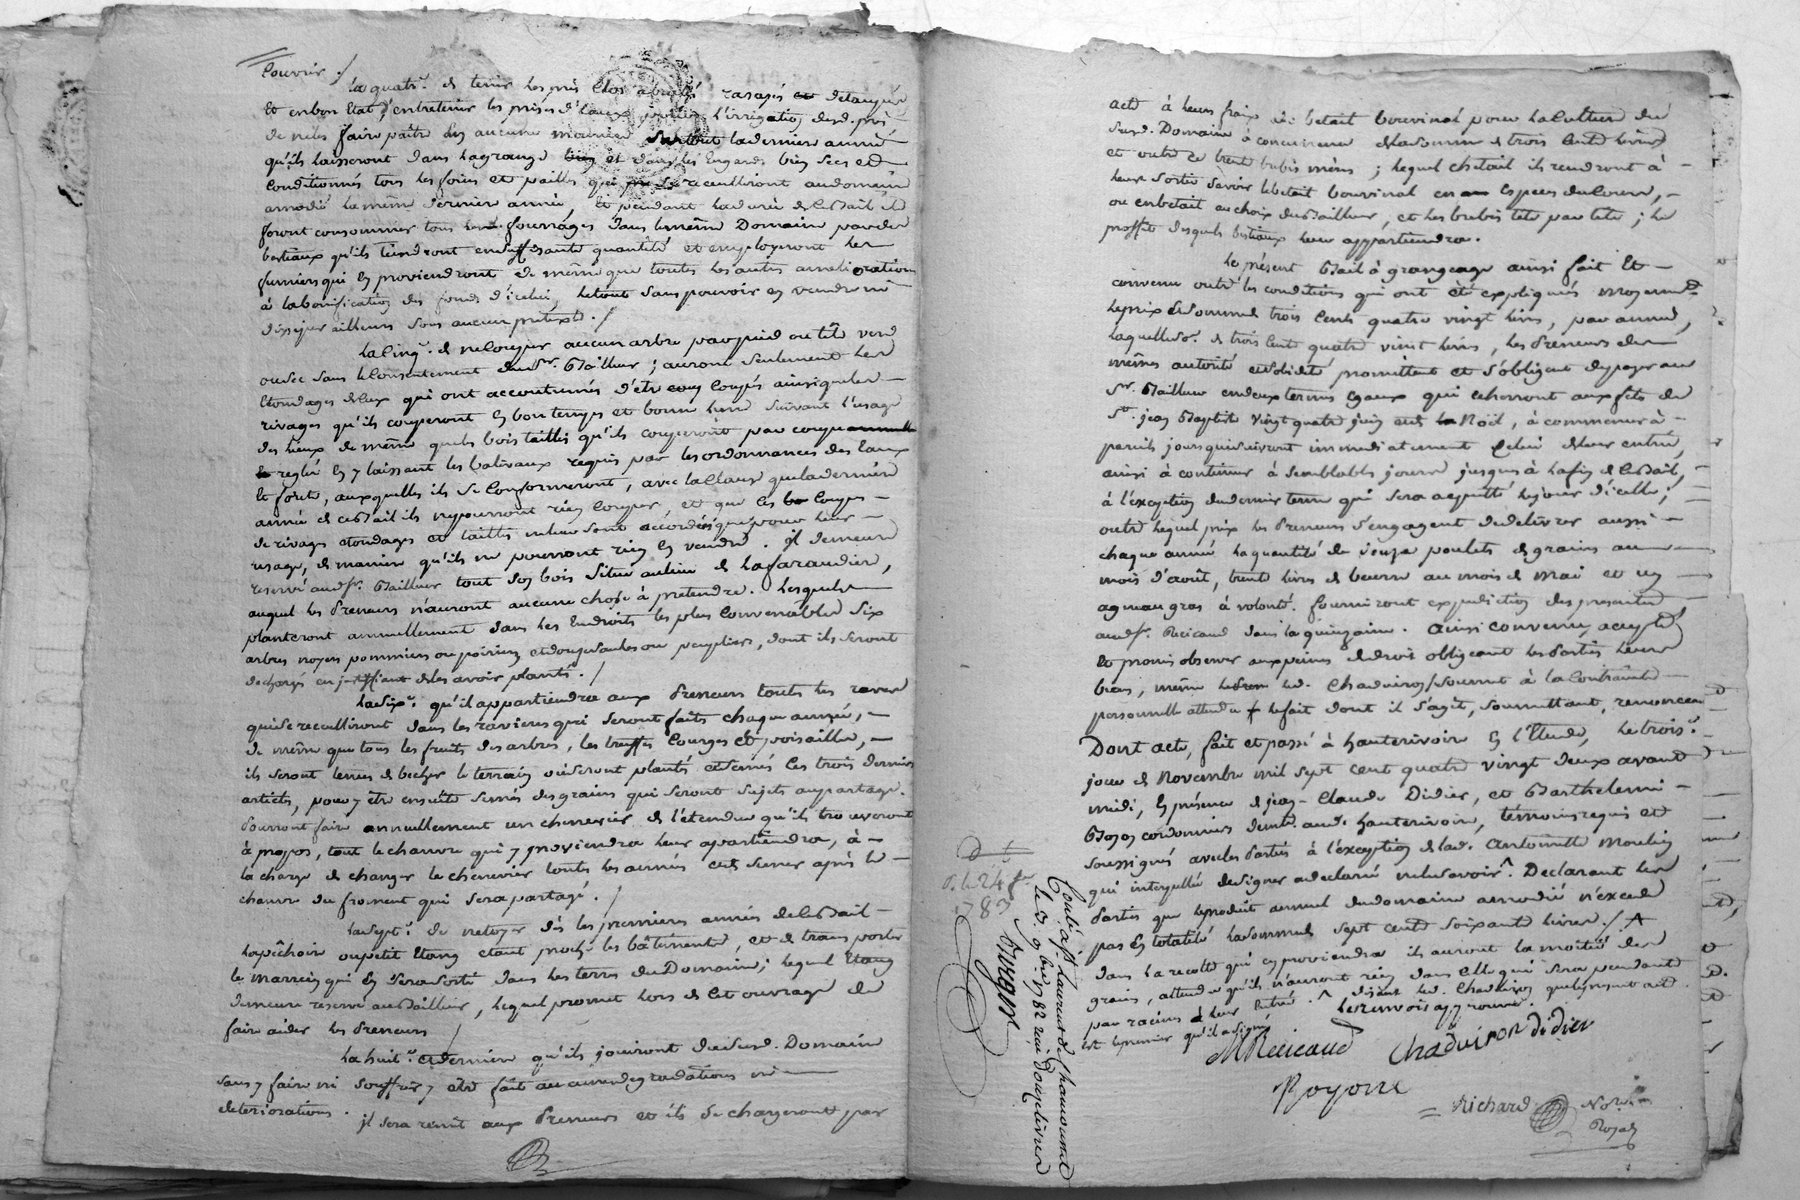 Couvrir ./
La quatr.e de tenir les prés clos abreuvés rasagés et detaupés
et en bon etat, d'entretenir les prises d'eaux pour l'irrigation desd. prés
de ne les faire paitre en aucune maniere surtout la derniere année
qu'ils laisseront dans la grange et dans les Engards bien secs et
conditionnés tous les foins et pailles qui se recuilliront aud domaine
amodié la même derniere année, et pendant la durée de ce Bail ils
feront consommer tous les fourrages dans le même Domaine par des
bestiaux qu'ils tiendront en suffisante quantité et employeront les
fumiers qui en proviendront de même que toutes les autres ameliorations
à la bonification des fonds d'icelui, le tout sans pouvoir en vendre ni
ailleurs sous aucun pretexte ./
La cinq.e de ne couper aucun arbre par pied ou tête verd
ou sec sans le consentement dud Sr. Bailleur ; auront seulement les
étondages de ceux qui ont accoutumés d'être coupés ainsi que les
rivages qu'ils couperont en bon temps et bonne lune suivant l'usage
des lieux de même que les bois taillis qu'ils couperont par coupe
reglée en y laissant les baliveaux requis par les ordonnances des Eaux
et forets, auxquelles ils se conformeront, avec la clause que la derniere
année de ce Bail ils ne pourront rien couper, et que ces coupes
de rivages étondages et taillis ne leur sont accordés que pour leur
usage, de maniere qu'ils ne pourront rien en vendre. Il demeure
reservé aud Sr. Bailleur tout son bois situé au lieu de la faraudier,
auquel les Preneurs n'auront aucune chose à pretendre. Lesquels
planteront annuellement dans les Endroits les plus convenables six
arbres noyers pommiers ou poiriers et douze saules ou peupliers, dont ils seront
dechargés en justifiant de les avoir plantés ./
La six.e qu'il appartiendra aux Preneurs toutes les raves
qui se recuilliront dans les ravieres qui seront faits chaque année,
de même que tous les fruits des arbres, les truffes Courges et poisaille,
ils seront tenus de becher le terrain où seront plantés et semés les trois derniers
articles, pour y être ensuite semés des grains qui seront sujets au partage.
Pourront faire annuellement un chenevier de l'étendue qu'ils trouveront
à propos, tout le chanvre qui y proviendra leur appartiendra, à
la charge de changer le chenevier toutes les années et de semer après le
chanvre du froment qui sera partagé ./
La sept.e de netoyer dès les premieres années de ce Bail
la pêchoir ou petit Etang étant proche les bâtiments, et de transporter
le marrein qui en sera sorti dans les terres du Domaine ; lequel Etang
demeure reservé au Bailleur, lequel promet lors de cet ouvrage de
faire aider les Preneurs /
La huit.e et derniere qu'ils jouiront dud susd. Domaine
sans y faire ni souffrir y être fait aucunes degradations ni
deteriorations.
Il sera remit aux Preneurs et ils se chargeront par
acte à leurs fraix de betail bouvinal pour la culture du
susd. Domaine à concurrence de la somme de trois cents livres
et outre ce trente brebis meres ; lequel chetail ils rendront à
leur sortie savoir le betail bouvinal en Especes du cours,
ou en betail au choix du Bailleur, et les brebis tête par tête ; le
proffit desquels bestiaux leur appartiendra.
Le présent Bail à grangeage ainsi fait et
convenu outre les conditions qui ont été expliquées moyennt.
le prix et somme de trois cents quatre vingt livres, par année,
laquelle so. de trois cent quatre vingt livres, les Preneurs des
mêmes autorité et solidité promettent et s'obligent de payer au
Sr. Bailleur en deux termes Egaux qui echerront aux fêtes de
St. jean Baptiste vingt quatre juin et de Noël, à commencer à
pareils jours qui suivront immediatement celui de leur entrée,
ainsi à continuer à semblables jours jusques à la fin de ce Bail,
à l'exception du dernier terme qui sera acquitté le jour d'icelle ;
outre lequel prix les Preneurs s'engagent de delivrer aussi
chaque année la quantité de douze poulets de grains au
mois d'août, trente livres de beurre au mois de mai et un
agneau gras à volonté. fourniront expedition des presentes
aud Sr. Recicaud dans la quinzaine. Ainsi convenu, accepté
et promis observer aux peines de droit obligeant les Parties leurs
biens, même led. Chadvizon / soumit à la contrainte
personnelle attendu le fait dont il s'agit, soumettant, renonceant
Dont acte, fait et passé à hauterivoir En l'Etude, le trois.e
jour de Novembre mil sept cent quatre vingt deux avant
midi, En présence de jean-Claude Didier, et Barthelemi
Boyon cordonniers demt. aud. hauterivoir, témoins requis et
soussignés avec les Parties à l'exception de lad. Antoinette Moulin
qui interpellée de signer a declaré ne le savoir ^. Declarant les
Parties que le produit annuel du domaine amodié n'excede
pas En totalité la somme de sept cent soixante livres ./ A
dans la recolte qui en proviendra ils auront la moitié des
grains, attendu qu'ils n'auront rien dans celle qui sera pendante
par racines à leur Entrée. ^ disant led. Chadvizon
est le premier qu'il a signé les renvois approuvés.
MRecicaud Chadvison didier
Boyonne
= Richard Not.re
Royal
Controlé a St. Laurent de Chamousset
le 3. 9bre 1782 reçu douze livres
D
24
1783